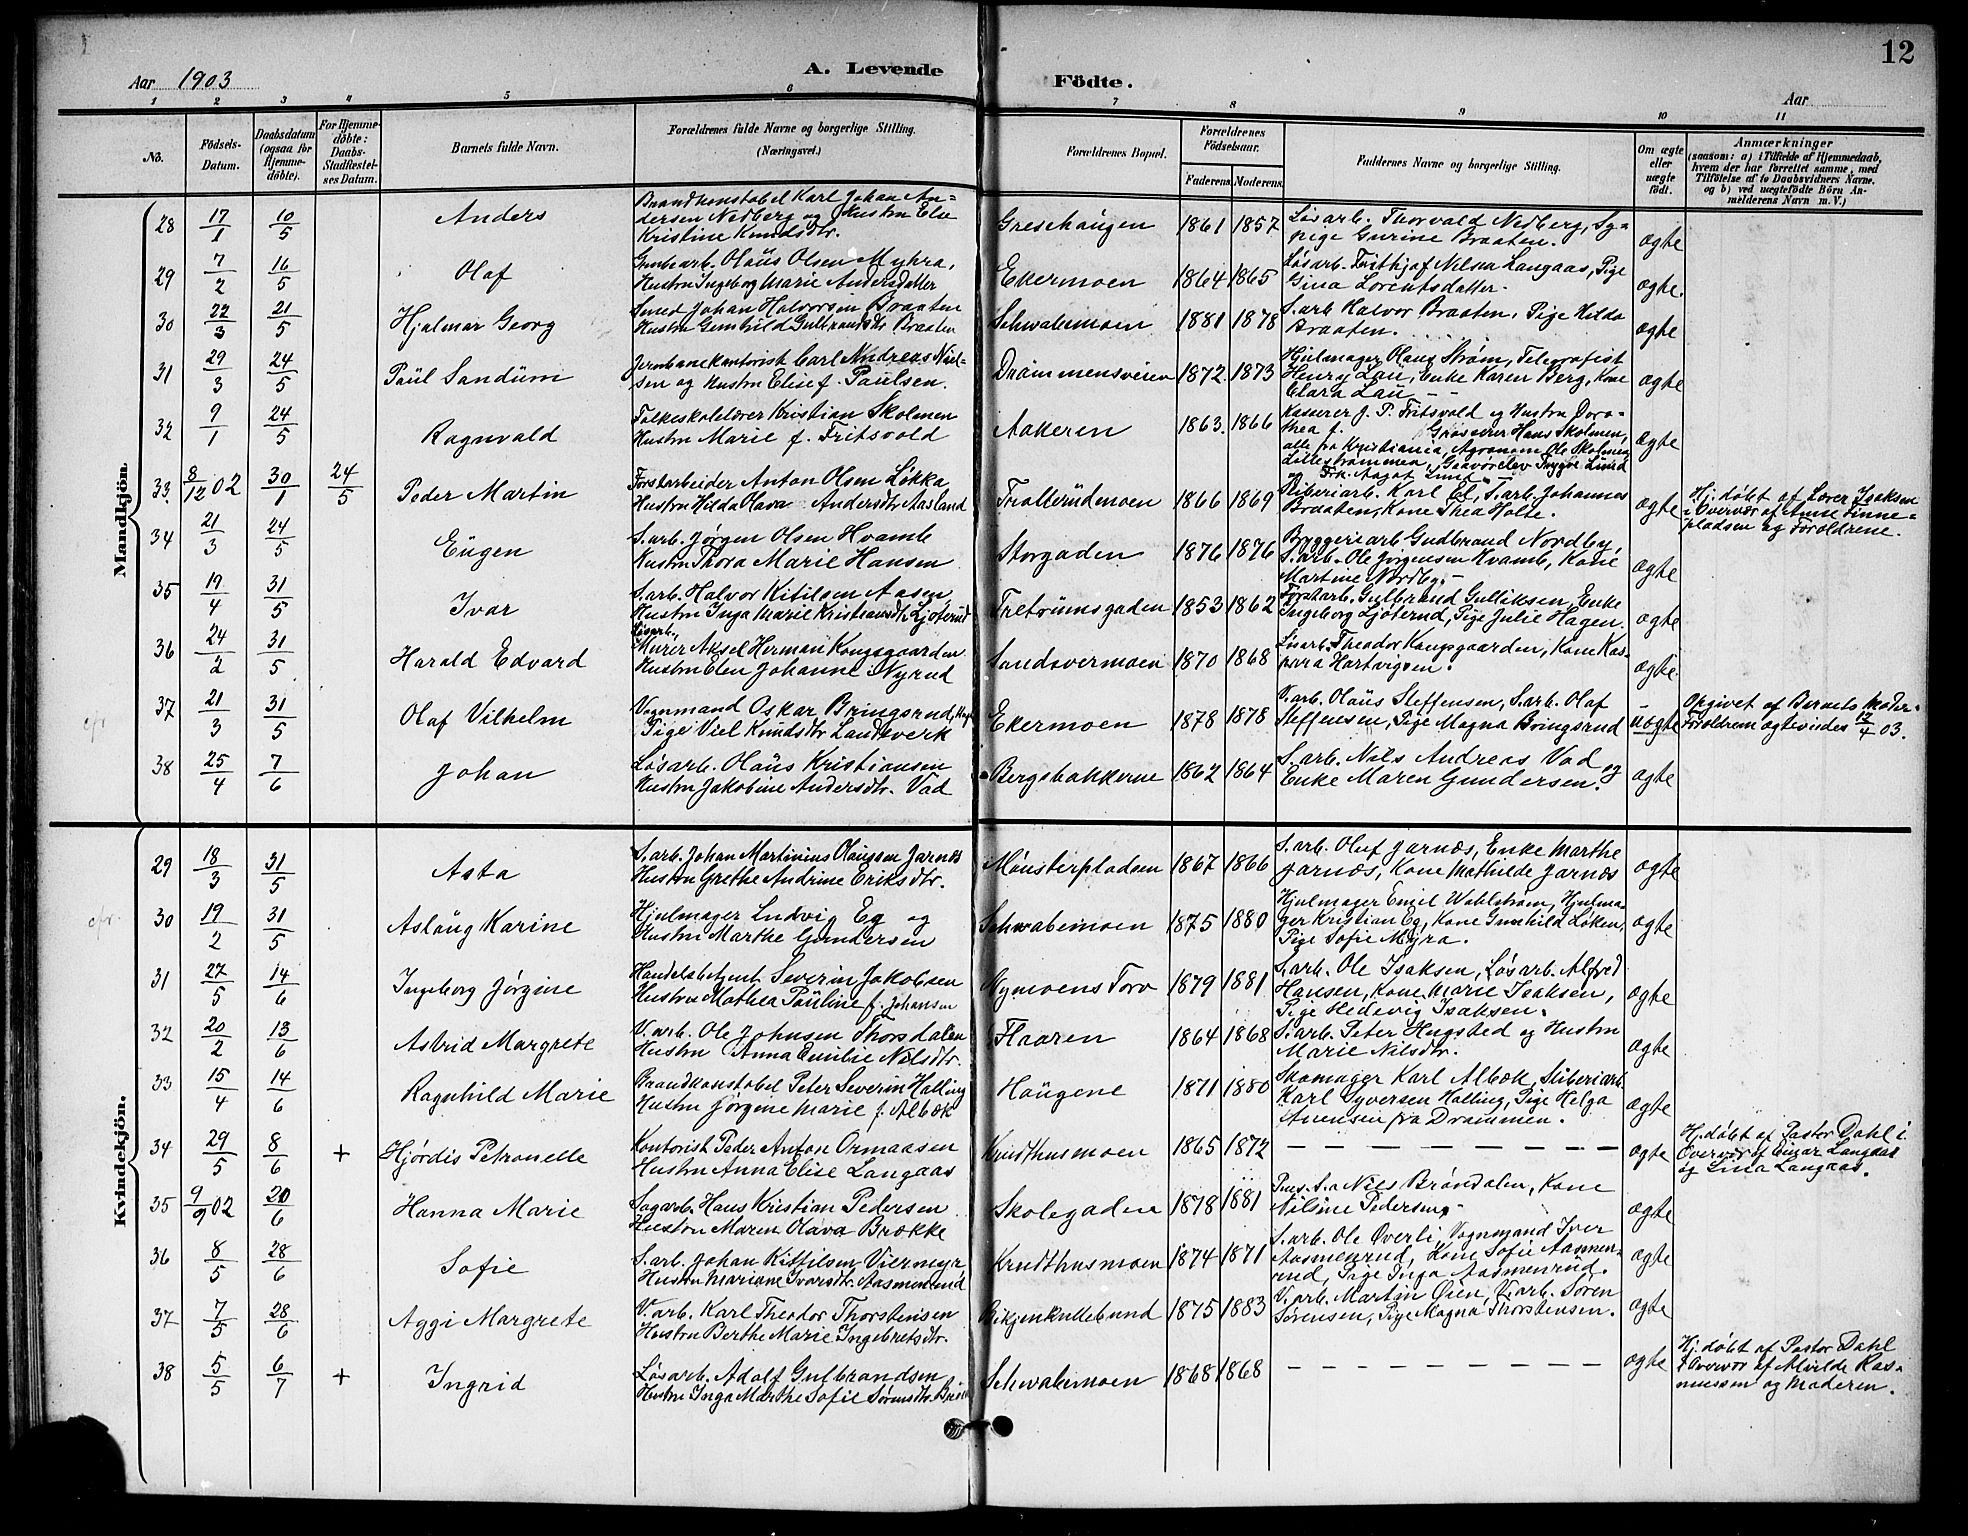 12
Aar 1903
A. Levende Födte.
Aar
1 2 3 4 5 6 7 8 9 10 11
No.
Födsels-Datum.
Daabsdatum (ogsaa for Hjemme-döbte).
For Hjemme-döbte: Daabs-Stadfæstel-ses Datum.
Barnets fulde Navn.
Forældrenes fulde Navne og borgerlige Stilling. (Næringsvei.)
Forældrenes Bopæl.
Forældrenes Födselsaar.
Faderens. Moderens.
Faddernes Navne og borgerlige Stilling.
Om ægte eller uægte födt.
Anmærkninger
(saasom: a) i Tilfælde af Hjemmedaab,
hvem der har forrettet samme, med
Tilföielse af to Daabsvidners Navne,
og b) ved uægtefödte Börn An-
melderens Navn m. V.)
Mandkjön.
28 17/1 10/5 Anders
Brandkonstabel Karl Johan An-
dersen Nedberg og Hustru Else
Kristine Knudsdtr.
Greschaugen 1861 1857
Løsarb. Thorvald Nedberg, Sy-
pige Gurine Braaten.
ægte
29 7/2 16/5 Olaf
Grubearb. Olaüs Olsen Myhra,
Hustru Ingeborg Marie Andersdatter
Ekermoen 1864 1865
Løsarb. Frithjof Nilsen Langaas, Pige
Gina Lorentsdatter.
ægte.
30 22/3 21/5 Hjalmar Georg
Smed Johan Halvorsen Braaten
Hustru Gunhild Gulbrandsdtr Braaten
Schwabemoen 1881 1878
S.arb. Halvor Braaten, Pige Hilda
Braaten.
ægte
31 29/3 24/5 Paül Sandüm
Jernbanekontorist Carl Andreas Niel-
sen og Hustru Elise f. Paulsen.
Drammensveien 1872. 1873
Hjulmager Olaus Strøm, Telegrafist
Henry Laü, Enke Karen Berg, Kone
Clara Laü
ægte
32 9/1 24/5 Ragnvald
Folkeskolelærer Kristian Skolmen
Hustru Marie f. Fritsvold
Aakeren 1863. 1866
Kasserer J. P. Fritsvold og Hustru Doro-
thea f. Grosserer Hans Skolmen,
alle fra Kristiania, Agronom Ole Skolmen
Lillestrømmen, Gravørelev Trygve Lund
og Frk. Aagot Lund
ægte
33. 8/12 02 30/1 24/5 Peder Martin
Forstarbeider Anton Olsen Løkka
Hustru Hilda Olava Andersdtr Aasland
Trollerüdmoen 1866 1869
Sliberiarb. Karl El, S.arb. Johannes
Braaten, Kone Thea Holte.
ægte
Hj.døbt af Lærer Isaksen
i Overvær af Anne Finne-
pladsen og Forældrene.
34 21/3 24/5 Eügen
S.arb. Jørgen Olsen Hvamb
Hustru Thora Marie Hansen
Storgaden 1876 1876
Bryggeriarb. Gudbrand Nordby,
S.arb. Ole Jørgensen Hvamb, Kone
Martine Nordby.
ægte
35 19/4 31/5 Ivar
S.arb. Halvor Kitilsen Aasen
Hustru Inga Marie Kristiansdtr Ljøterud
Tretrümsgaden 1853 1862
Forstarb. Gulbrand Gulliksen, Enke
Ingeborg Ljøterud, Pige Julie Hagen.
ægte
36 24/2 31/5 Harald Edvard
Løsarb.
Murer Aksel Herman Kongsgaarden
Hustru Elen Johanne Nyrud
Sandsvermoen 1870 1868
Løsarb. Theodor Kongsgaarden, Kone Kas-
para Hartvigsen.
ægte.
cfr. 37 21/3 31/5 Olaf Vilhelm
Vognmand Oskar Bringsrud,
Pige Viel Knudsdtr Landsverk
Ekermoen 1878 1878
V.arb. Olaüs Steffensen, S.arb. Olaf
Steffensen, Pige Magna Bringsrud
uægte
Opgivet af Barnets Moder.
Forældrene ægteviedes 12/4 03.
38 25/4 7/6 Johan
Løsarb. Olaüs Kristiansen
Hustru Jakobine Andersdtr. Vad
Bergsbakkerne 1862 1864
S.arb. Nils Andreas Vad og
Enke Maren Gundersen.
ægte
Kvindekjön.
29 18/3 31/5 Asta
S.arb. Johan Martinius Olaussen Jarnæs
Hustru Grethe Andrine Eriksdtr.
Münsterpladsen 1867 1866
S.arb. Oluf Jarnæs, Enke Marthe
Jarnæs, Kone Mathilde Jarnæs
ægte
cfr. 30 19/2 31/5 Aslaug Karine
Hjulmager Ludvig Eg og
Hustru Marthe Gundersen
Schwabemoen 1875 1880
Hjulmager Emil Wahlstrøm, Hjulma-
ger Kristian Eg, Kone Gunhild Løken,
Pige Sofie Myra.
ægte
31 27/5 14/6 Ingeborg Jørgine
Handelsbetjent Severin Jakobsen
Hustru Mathea Pauline f. Johansen
Nymoens Torv 1879 1881
S.arb. Ole Isaksen, Løsarb. Alfred
Hansen, Kone Marie Isaksen,
Pige Hedevig Isaksen.
ægte
32 20/2 13/6 Astrid Margrete
V.arb. Ole Johnsen Thorsdalen
Hustru Anna Emilie Nilsdtr.
Flaaren 1864 1868
S.arb. Peter Hugsted og Hustru
Marie Nilsdtr.
ægte
33 15/4 14/6 Ragnhild Marie
Brandkonstabel Peter Severin Halling
Hustru Jørgine Marie f. Albæk
Haügene 1871 1880
Skomager Karl Albæk, Sliberiarb.
Karl Syversen Halling, Pige Helga
Anensen fra Drammen.
ægte
34 29/5 8/6 + Hjørdis Petronelle
Kontorist Peder Anton Ormaasen
Hustru Anna Elise Langaas
Krudthusmoen 1865 1872
— — — — — — — — —
ægte
Hj.døbt af Pastor Dahl i
Overvær af Einar Langaas
og Lina Langaas.
35 9/9 02 20/6 Hanna Marie
Sagarb. Hans Kristian Pedersen
Hustru Maren Olava Brække
Skolegaden 1878 1881
Nils Brøndalen, Kone
Nilsine Pedersen
ægte
36 8/5 28/6 Sofie
S.arb. Johan Kittilsen Viermyr
Hustru Mariane Ivarsdtr. Aasmenrud
Krudthusmoen 1874 1871
S.arb. Ole Øverli, Vognmand Iver
Aasmenrud, Kone Sofie Aasmen-
rud, Pige Inga Aasmenrud.
ægte
37 7/5 28/6 Aggi Margrete
V.arb. Karl Theodor Thorstensen
Hustru Berthe Marie Ingebretsdtr.
Bikjenkullebund 1875 1883
V.arb. Martin Øien, V.arb. Søren
Sørensen, Pige Magna Thorstensen.
ægte
38 5/5 6/7 + Ingrid
Løsarb. Adolf Gulbrandsen
Hustru Inga Marthe Sofie Sørensdtr.
Schwabemoen 1868 1868
— — — — — — — — —
ægte
Hj.døbt af Pastor Dahl
i Overvær af Alvilde Ras-
mussen og Moderen.